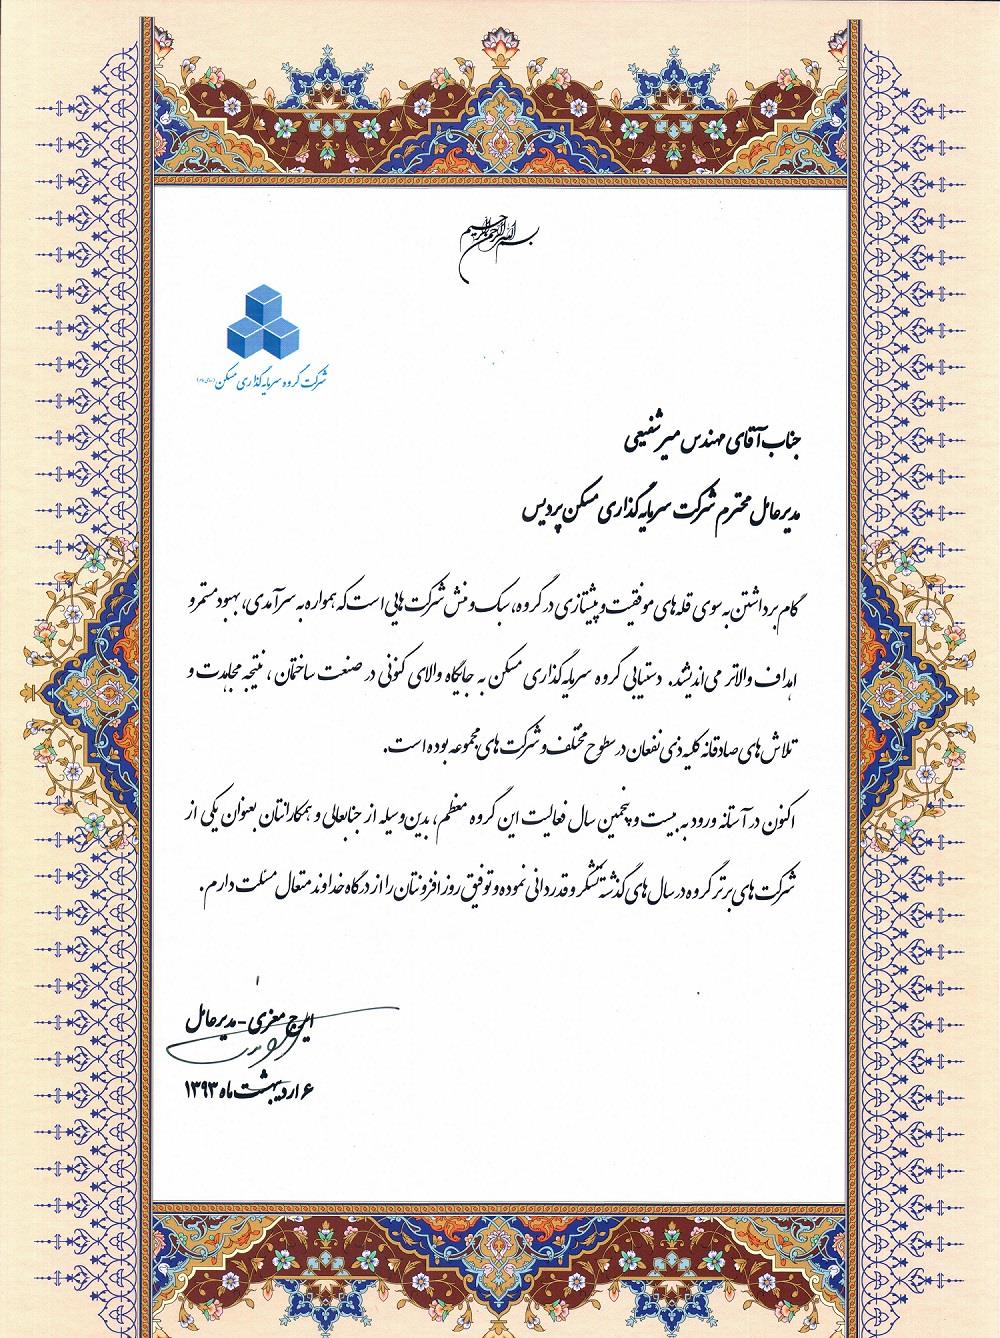 بسم الله الرحمن الرحیم
شرکت گروه سرمایه گذاری مسکن (سهامی عام)
جناب آقای مهندس میرشفیعی
مدیرعامل محترم شرکت سرمایه گذاری مسکن پردیس
گام برداشتن به سوی قله های موفقیت و پیشتازی در گروه، سبک و منش شرکت هایی است که همواره به سرآمدی، بهبود مستمر و
اهداف والاتر می اندیشد. دستیابی گروه سرمایه گذاری مسکن به جایگاه والای کنونی در صنعت ساختمان، نتیجه مجاهدت و
تلاش های صادقانه کلیه ذی نفعان در سطوح مختلف و شرکت های مجموعه بوده است.
اکنون در آستانه ورود به بیست و پنجمین سال فعالیت این گروه معظم، بدین وسیله از جنابعالی و همکارانتان بعنوان یکی از
شرکت های برتر گروه در سال های گذشته تشکر و قدردانی نموده و توفیق روز افزونتان را از درگاه خداوند متعال مسئلت دارم.
ایرج معزی - مدیرعامل
۶ اردیبهشت ماه ۱۳۹۳